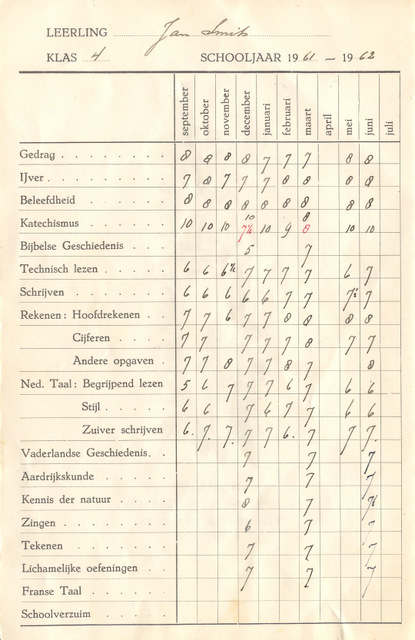 LEERLING Jan Smits
KLAS 4 SCHOOLJAAR 1961 — 1962
september oktober november december januari februari maart april mei juni juli
Gedrag 8 8 8 8 7 7 7 8 8
IJver 7 8 7 7 7 8 8 8 8
Beleefdheid 8 8 8 8 8 8 8 8 8
Katechismus 10 10 10 10 7½ 10 9 8 8 10 10
Bijbelse Geschiedenis 5 7
Technisch lezen 6 6 6½ 7 7 7 7 6 7
Schrijven 6 6 6 6 6 7 7 7½ 7
Rekenen: Hoofdrekenen 7 7 6 7 7 8 8 8 8
Cijferen 7 7 7 7 7 8 7 7
Andere opgaven 7 7 8 7 7 8 7 8
Ned. Taal: Begrijpend lezen 5 6 7 7 7 6 7 6 6
Stijl 6 6 7 6 7 7 6 6
Zuiver schrijven 6. 7. 7. 7 7 6. 7 7 7.
Vaderlandse Geschiedenis 7 7 7
Aardrijkskunde 7 7 7
Kennis der natuur 8 7 7½
Zingen 6 7 7
Tekenen 7 7 7
Lichamelijke oefeningen 7 7 7
Franse Taal
Schoolverzuim